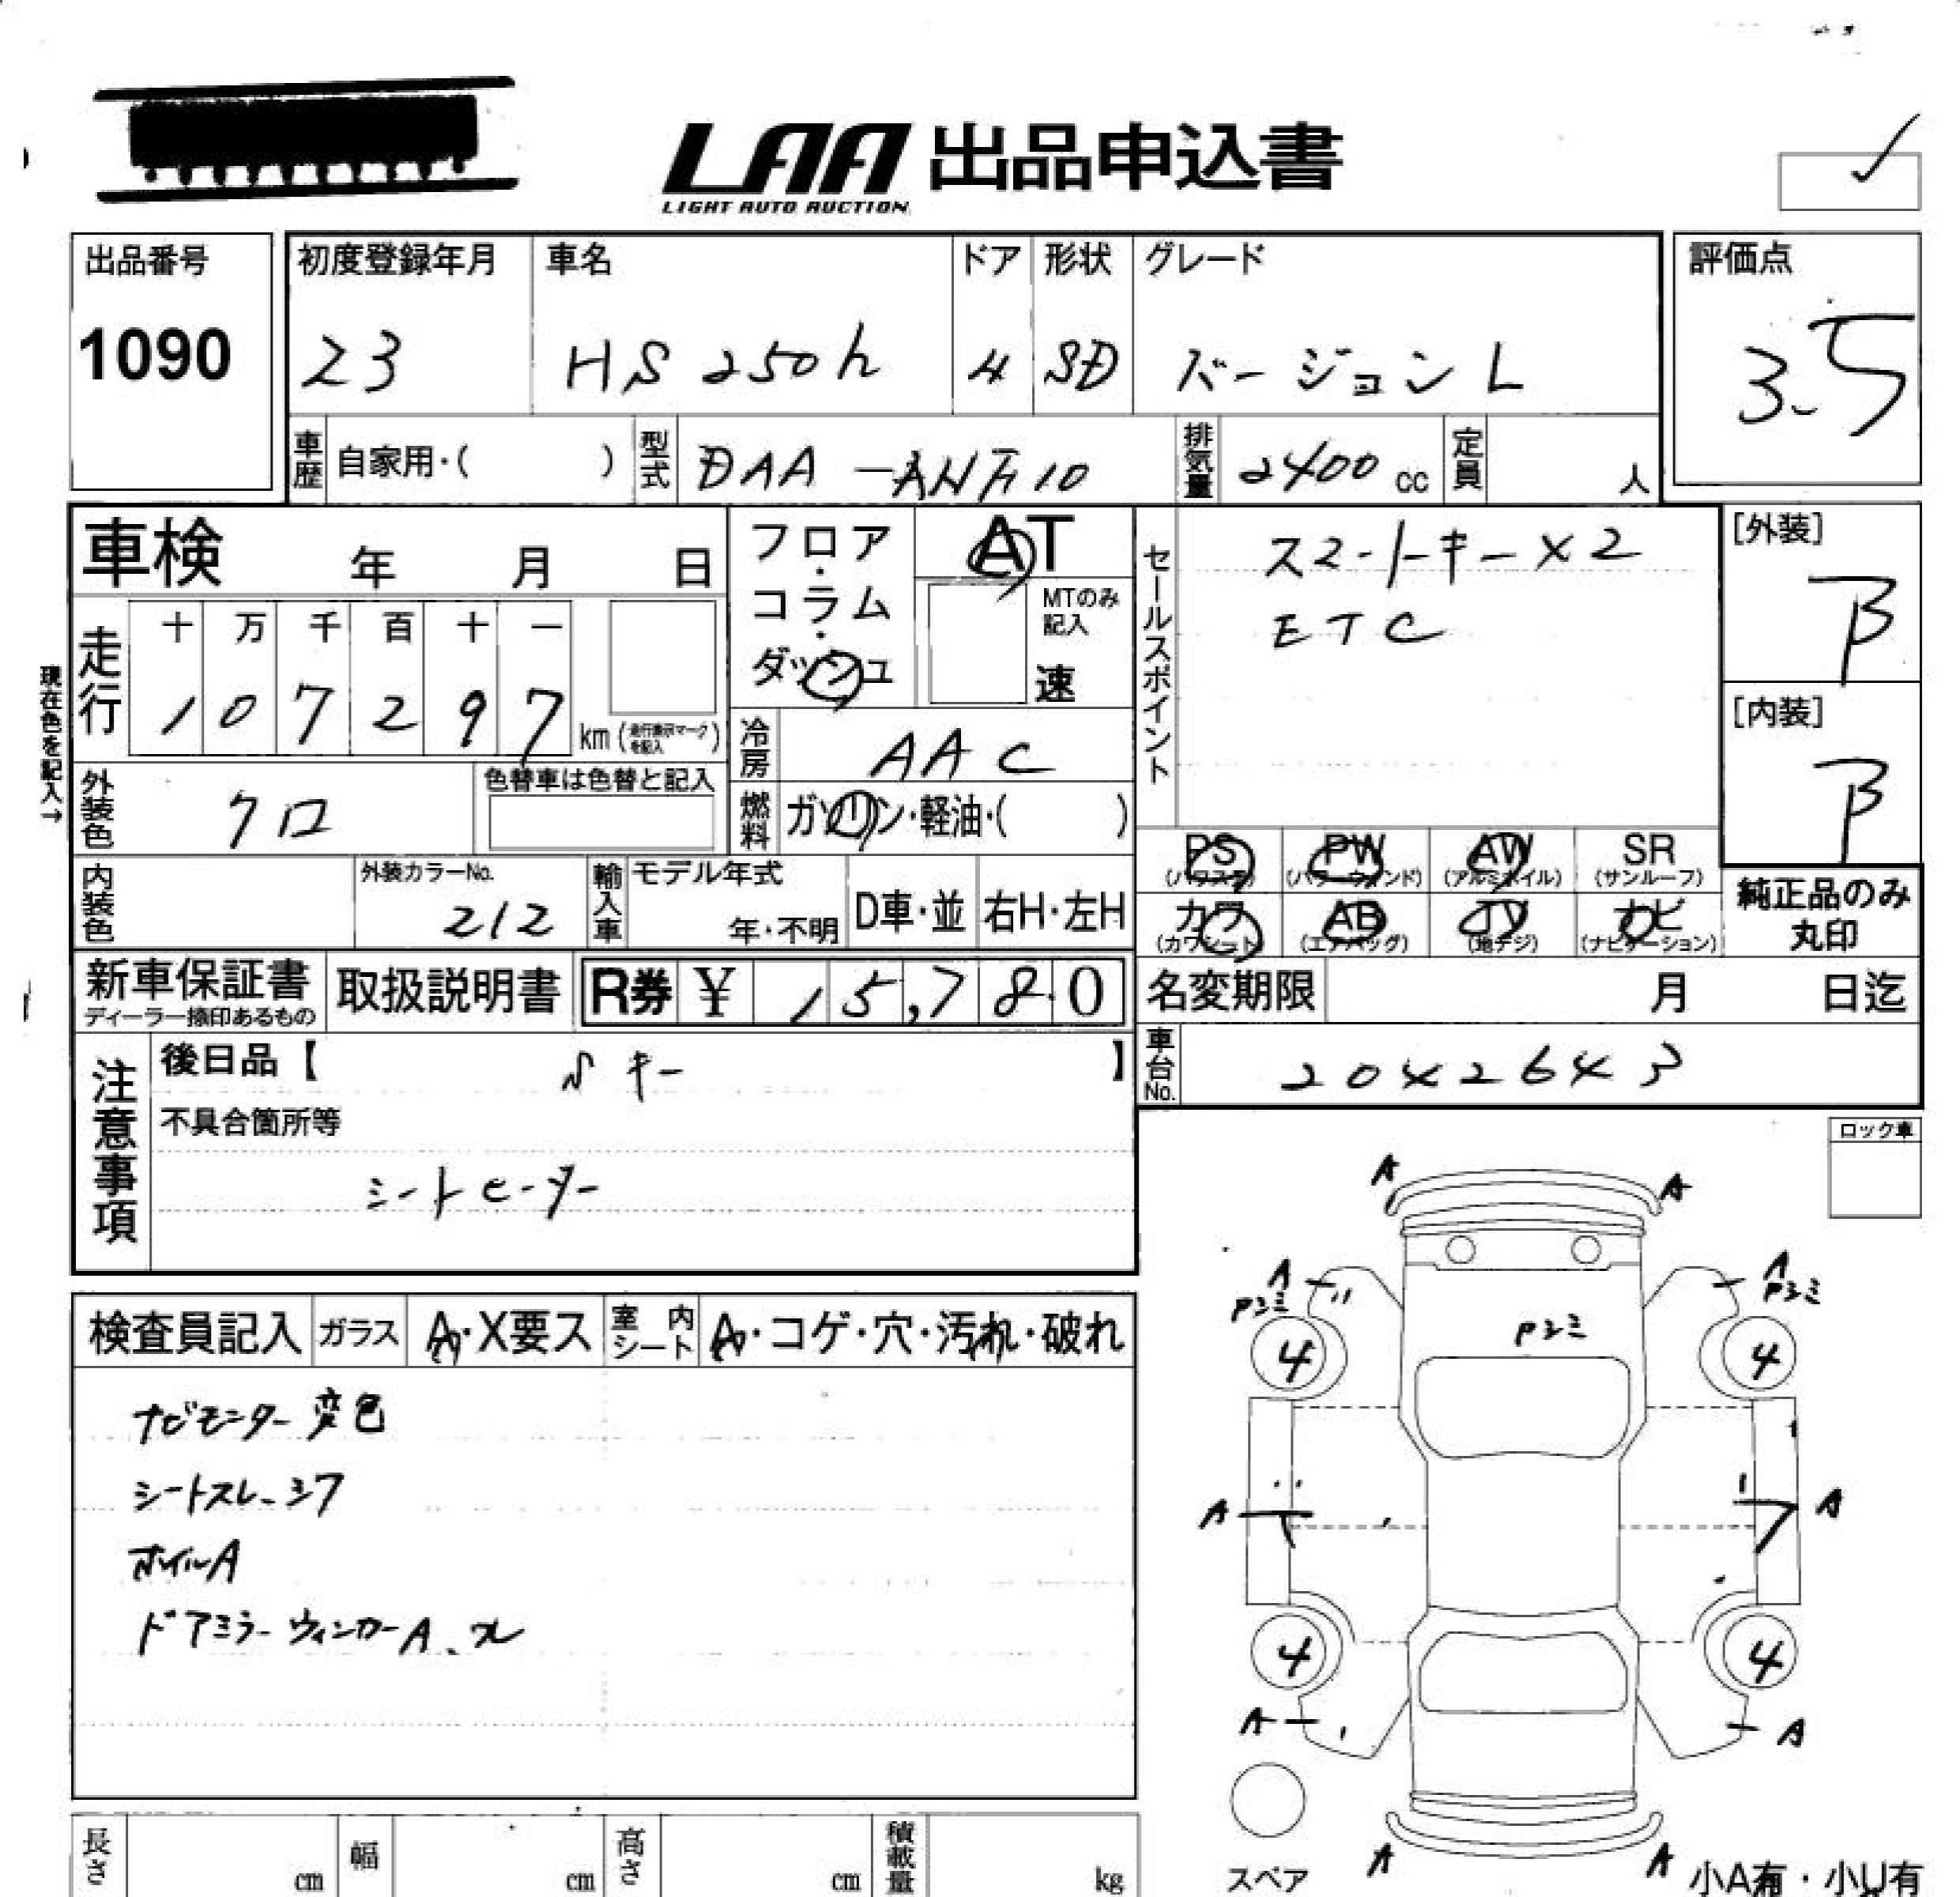 LAA 出品申込書
LIGHT AUTO AUCTION
出品番号
1090
初度登録年月
23
車名
HS250h
ドア
4
形状
SD
グレード
バージョンL
評価点
3.5
車歴 自家用・( )
型式 DAA-ANF10
排気量 2400cc
定員 人
車検 年 月 日
フロア・コラム・ダッシュ
AT
MTのみ記入
速
セールスポイント
スマートキー×2
ETC
[外装]
B
[内装]
B
現在色を記入→
走行
十 万 千 百 十 一
1 0 7 2 9 7 km(走行表示マークを記入)
冷房 AAC
外装色 クロ
色替車は色替と記入
燃料 ガソリン・軽油・( )
PS (パワステ)
PW (パワーウィンド)
AW (アルミホイル)
SR (サンルーフ)
カワ (カワシート)
AB (エアバッグ)
TV (地デジ)
ナビ (ナビゲーション)
純正品のみ丸印
内装色
外装カラーNo.
212
輸入車
モデル年式
年・不明
D車・並
右H・左H
新車保証書
ディーラー捺印あるもの
取扱説明書
R券 ¥ 15,780
名変期限 月 日迄
車台No. 2042643
注意事項
後日品【 キー 】
不具合箇所等
シートヒーター
ロック車
検査員記入
ガラス A・X要ス
室内シート A・コゲ・穴・汚れ・破れ
ナビモニター変色
シートスレ、シワ
ホイルA
ドアミラーウィンカーA、
A A
A A
4 4
A A
4 4
A A
A A
スペア
小A有・小U有
長さ cm
幅 cm
高さ cm
積載量 kg